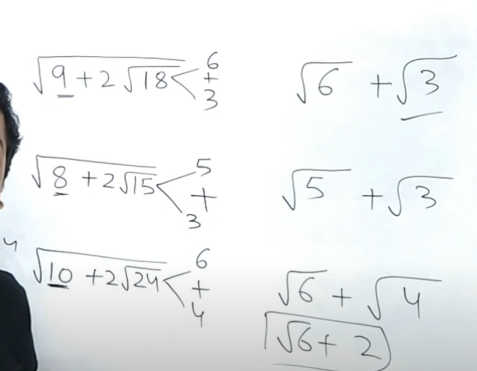 √(9 + 2√18) < 6 + 3    √6 + √3
√(8 + 2√15) < 5 + 3    √5 + √3
4
√(10 + 2√24) < 6 + 4    √6 + √4
√6 + 2